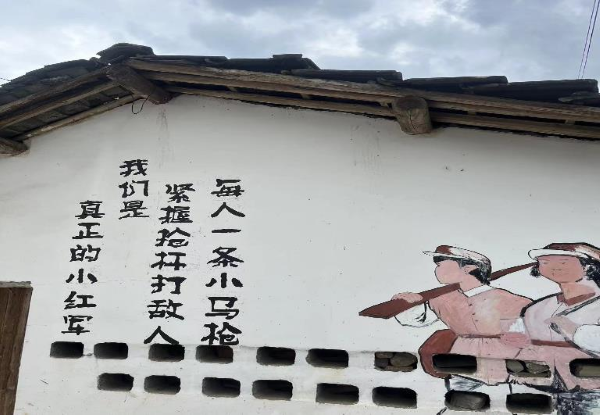 每人一条小马枪
紧握抢杆打敌人
我们是
真正的小红军